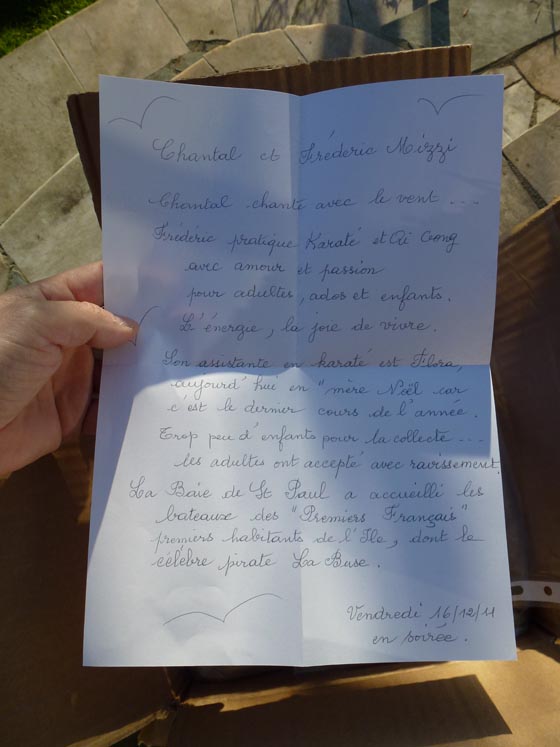 Chantal et Frédéric Mizzi
Chantal chante avec le vent ...
Frédéric pratique Karaté et Qi Gong
avec amour et passion
pour adultes, ados et enfants.
L'énergie, la joie de vivre.
Son assistante en karaté est Flora,
aujourd'hui en "mère Noël car
c'est le dernier cours de l'année.
Trop peu d'enfants pour la collecte ...
les adultes ont accepté avec ravissement.
La Baie de St Paul a accueilli les
bateaux des "Premiers Français"
premiers habitants de l'Ile, dont le
célèbre pirate La Buse.
Vendredi 16/12/11
en soirée.